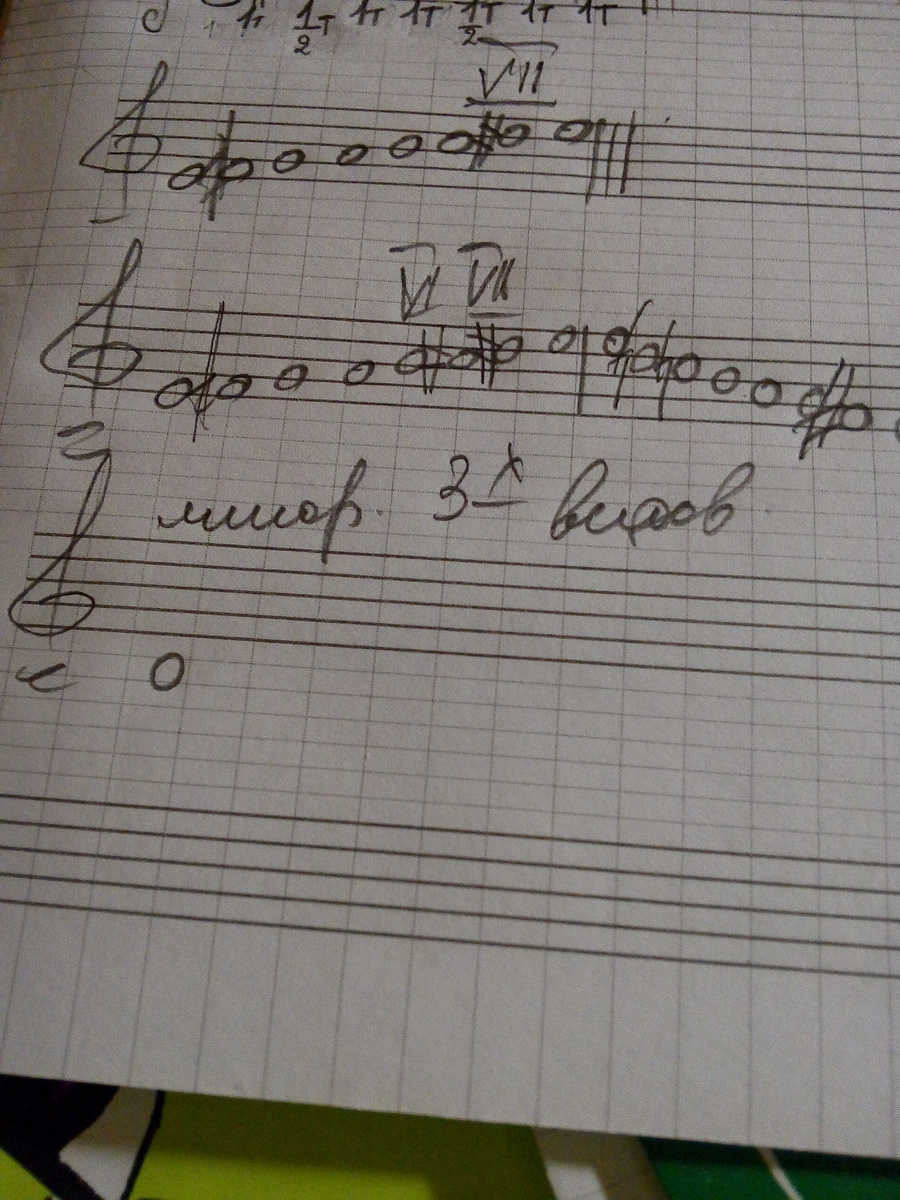 1т 1/2т 1т 1т 1/2т 1т 1т
VII
VI VII
минор. 3х видов